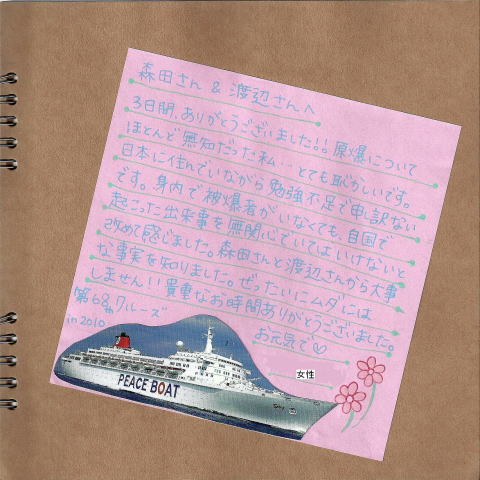 森田さん & 渡辺さんへ
3日間、ありがとうございました!! 原爆について
ほとんど無知だった私... とても恥かしいです。
日本に住んでいながら勉強不足で申し訳ない
です。身内で被爆者がいなくても、自国で
起こった出来事を無関心でいてはいけないと
改めて感じました。森田さんと渡辺さんから大事
な事実を知りました。ぜったいにムダには
しません!! 貴重なお時間ありがとうございました。
お元気で♡
第68thクルーズ
in 2010
女性
PEACE BOAT